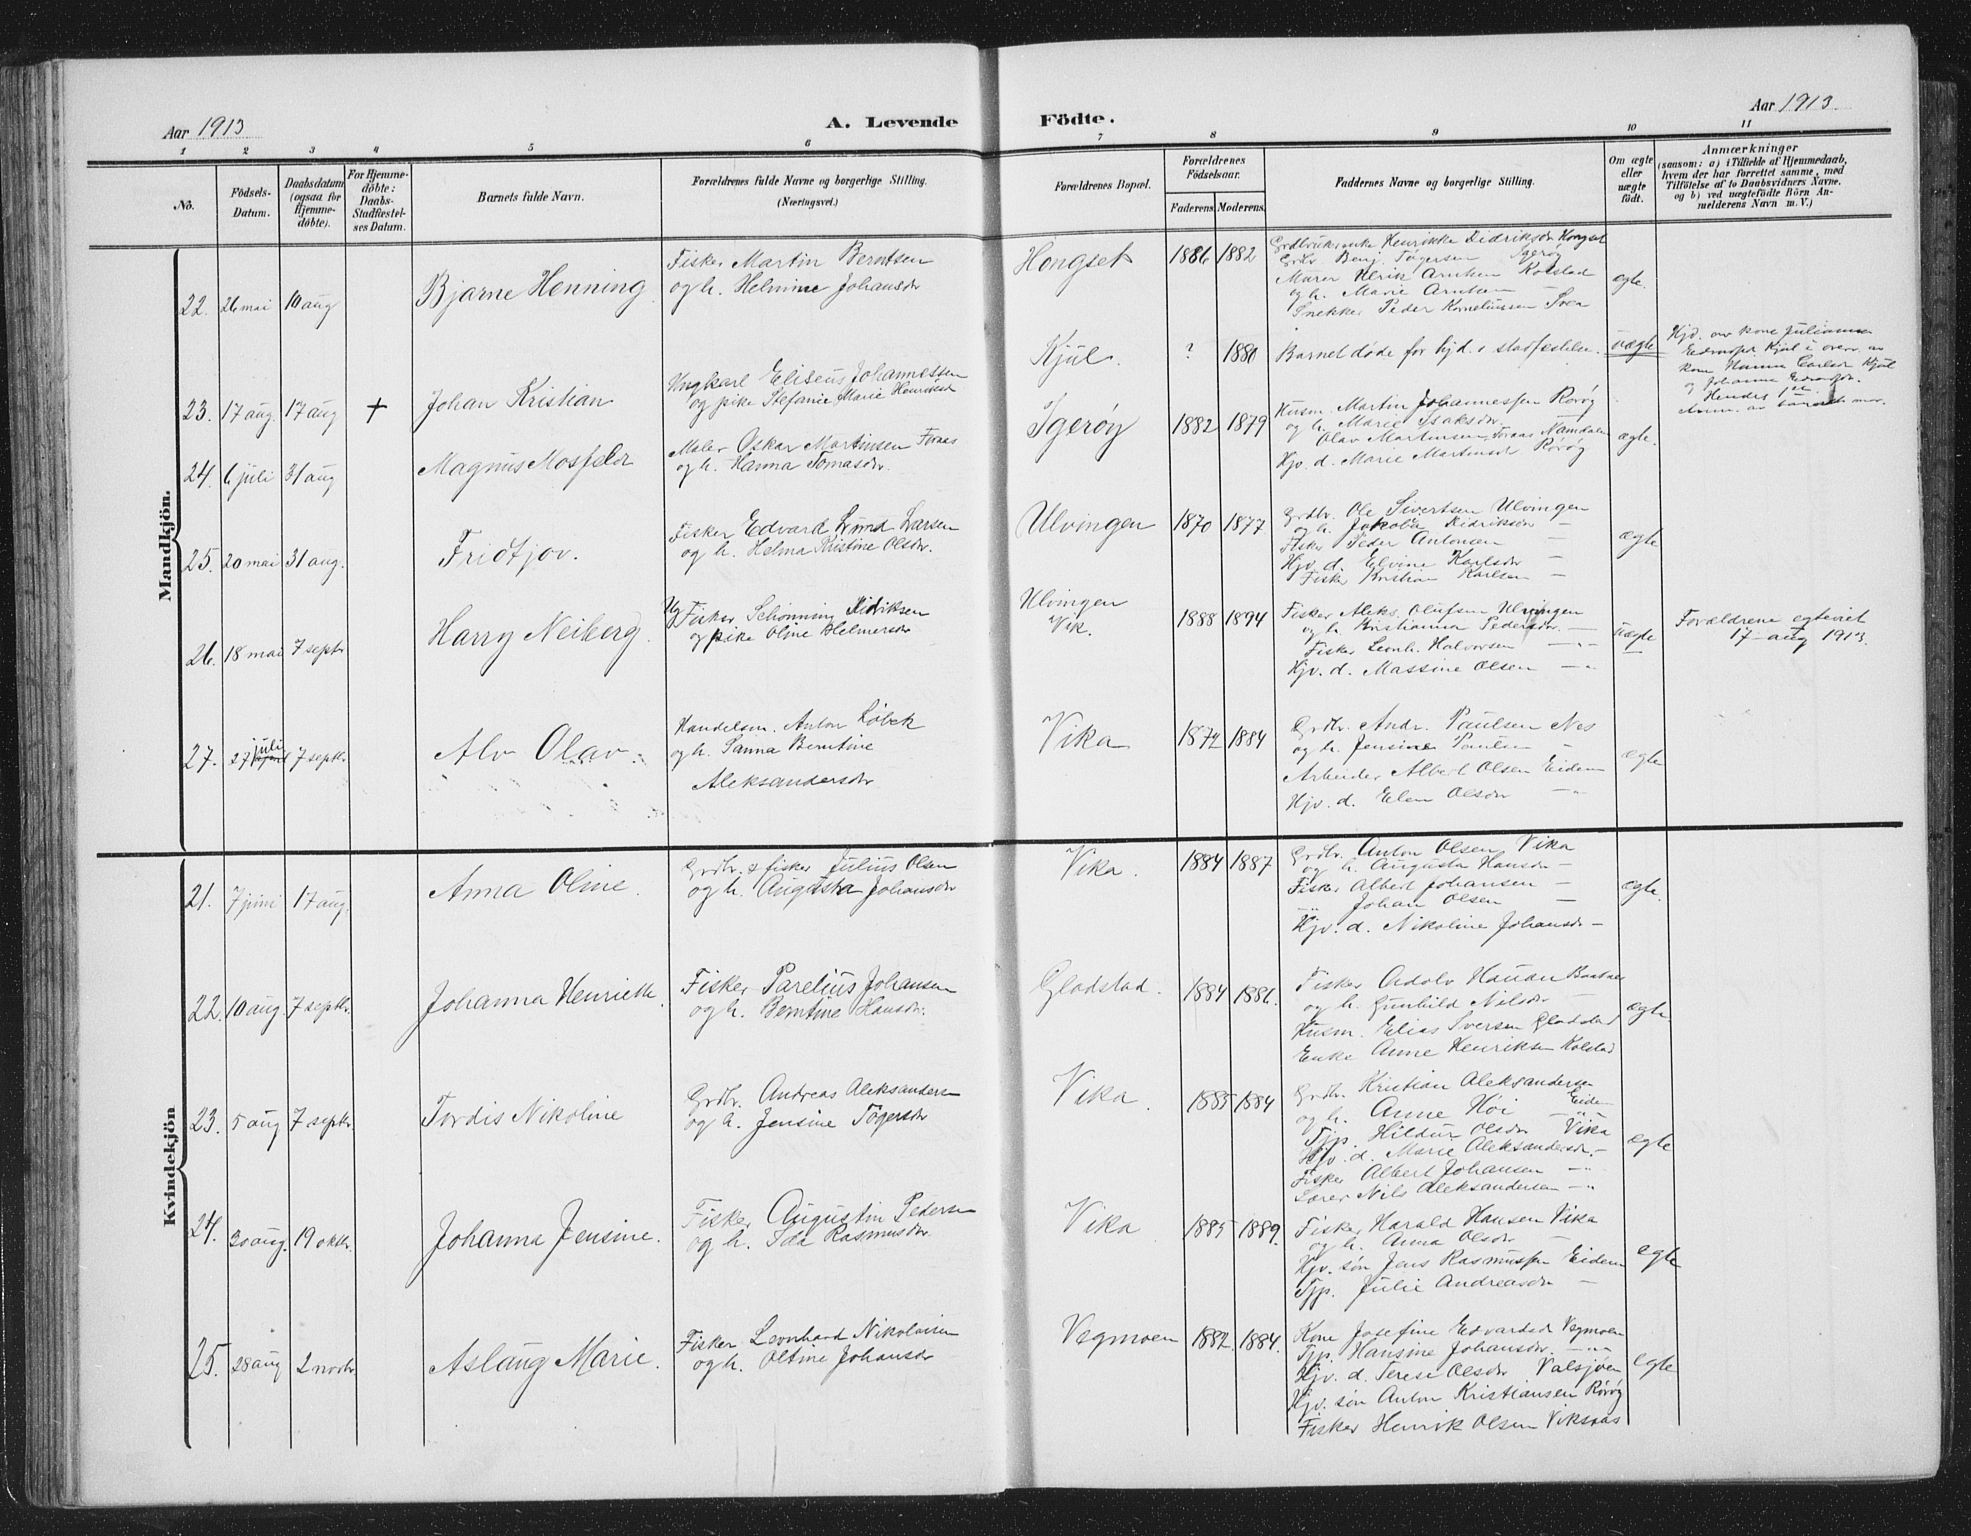 Aar 1913
A. Levende
Födte.
Aar 1913.
1 2 3 4 5 6 7 8 9 10 11
No.
Födsels-
Datum.
Daabsdatum
(ogsaa for
Hjemme-
döbte).
For Hjemme-
döbte:
Daabs-
Stadfæstel-
ses Datum.
Barnets fulde Navn.
Forældrenes fulde Navne og borgerlige Stilling.
(Næringsvei.)
Forældrenes Bopæl.
Forældrenes
Födselsaar.
Faderens. Moderens.
Faddernes Navne og borgerlige Stilling.
Om ægte
eller
uægte
födt.
Anmærkninger
(saasom: a) i Tilfælde af Hjemmedaab,
hvem der har forrettet samme, med
Tilföielse af to Daabsvidners Navne.
og b) ved uægtefödte Börn An-
melderens Navn m. V.)
Mandkjön.
22. 26 mai 10 aug
Bjarne Henning
Fisker Martin Berntsen
og h. Helmine Johansdr
Hongset
1886 1882
Grdbruksenke Henrikke Didriksdr Hongset
Grdbr Benj. Tøgersen Igerøy
Murer Ulrik Arntzen Kolstad
og h. Marie Arntzen
Snekker Peder Korneliussen
ægte.
23. 17 aug. 17 aug +
Johan Kristian
Ungkarl Eliseus Johannessen
og pike Stefanie Marie
Kjul.
? 1880
Barnet døde før hjd. s stadfestelse.
uægte
Hjd. av kone Julianna
Kjul i overv. av
kone Hanna Kjul
og Johanna
Hendes 1ste
24. 6 juli 31 aug
Magnus Mosfeldt
Maler Oskar Martinsen Foraas
og h. Hanna Tomasdr.
Igerøy
1882 1879
Husm. Martin Johannessen Rørøy
og h. Marie Isaksdr.
Olav Martinsen Foraas Namdalen
Hjv. d. Marie Martinsdr Rørøy
ægte.
25. 20 mai 31 aug.
Fridtjov.
Fisker Edvard Lund Larsen
og h. Helma Kristine Olsdr.
Ulvingen
1870 1877
Grdbr. Ole Sivertsen Ulvingen
og h. Jakobia Didriksdr —
Fisker Peder Antonsen —
Hjv. d. Elvine Karlsdr —
Fisker Kristian Karlsen —
ægte
26. 18 mai 7 septr.
Harry Neiberg.
Ug Fisker Schønning Didriksen
og pike Oline Helmersdr
Ulvingen
Vik.
1888 1894
Fisker Aleks. Olufsen Ulvingen
og h. Kristianna Pedersdr. —
Fisker Leonh. Halvorsen —
Hjv. d. Massine Olsen —
uægte
Forældrene egteviet
17 - aug 1913.
juli
27. 27 7 septr.
Alv Olav.
Handelsm. Anton Løbek
og h. Sanna Berntine
Aleksandersdr
Vika
1872 1884
Grdbr. Andr. Paulsen Nes
og h. Jensine Paulsen —
Arbeider Albert Olsen Eidem
Hjv. d. Elen Olsdr —
ægte
Kvindekjön
21. 7 juni 17 aug.
Anna Oline.
Grdbr. & fisker Julius Olsen
og h. Augusta Johansdr
Vika.
1884 1887
Grdbr. Anton Olsen Vika
og h. Augusta Hansdr —
Fisker Albert Johansen —
" Johan Olsen —
Hjv. d. Nikoline Johansdr —
ægte.
22. 10 aug. 7 septr.
Johanna Henriette.
Fisker Parelius Johansen
og h. Berntine Hansdr.
Gladstad.
1884 1886.
Fisker Adolv Hauan
og h. Gunhild Nilsdr —
Husm. Elias Iversen Gladstad
Enke Anne Henriksen Kolstad
ægte.
23. 5 aug 7 septr.
Tordis Nikoline
Grdbr. Andreas Aleksandersen
og h. Jensine Tøgersdr
Vika.
1885 1884
Grdbr. Kristian Aleksandersen
Eidem
og h. Anne Høi —
Tjp. Hildur Olsdr Vika
Hjv. d. Marie Aleksandersdr. —
Fisker Albert Johansen —
Lærer Nils Aleksandersen —
ægte
24. 30 aug. 19 oktr.
Johanna Jensine.
Fisker Augustin Pedersen
og h. Ida Rasmusdr.
Vika
1885 1889.
Fisker Harald Hansen Vika
og h. Anna Olsdr —
Hjv. søn Jens Rasmussen Eidem
Tjp. Julie Andreasdr —
ægte
25. 28 aug 2 novbr.
Aslaug Marie.
Fisker Leonhard Nikolaisen
og h. Oltine Johansdr
Vegmoen
1882. 1884.
Kone Josefine Edvardsd Vegmoen
Tjp. Hansine Johansdr. —
Hjv. d. Terese Olsdr Valsjøen
Hjv. søn Anton Kristiansen Rørøy
Fisker Henrik Olsen Viksaas
ægte